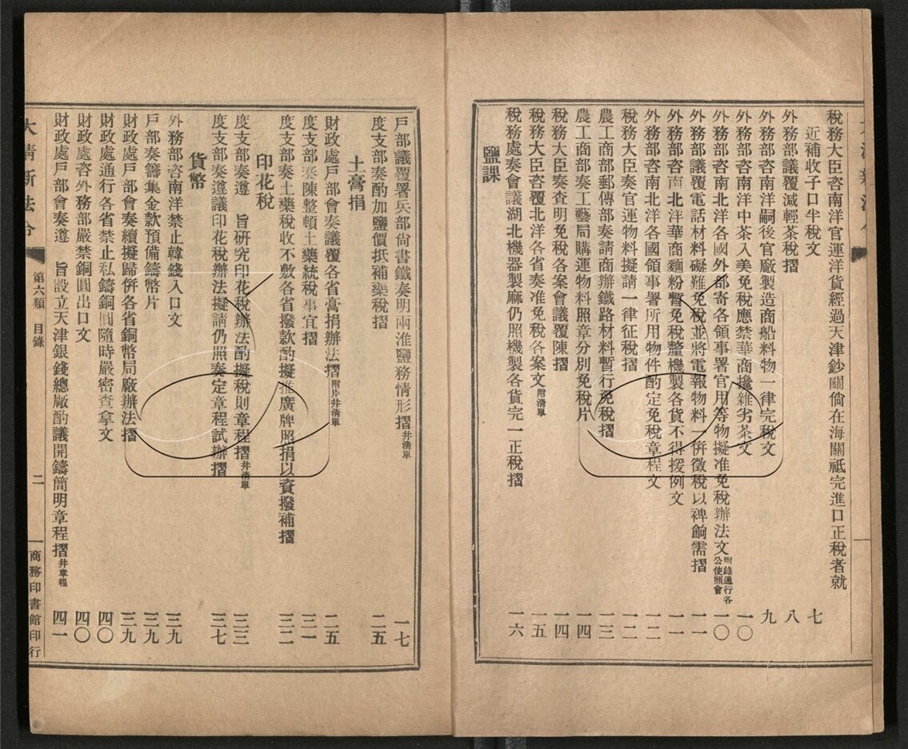 稅務大臣咨南洋官運洋貨經過天津鈔關倘在海關祇完進口正稅者就
近補收子口半稅文 七
外務部議覆減輕茶稅摺 八
外務部咨南洋嗣後官廠製造商船料物一律完稅文 九
外務部咨南洋中茶入美免稅應禁華商攙雜劣茶文 一〇
外務部咨南北洋各國外部寄各領事署官用等物擬准免稅辦法文附錄通行各公使照會 一〇
外務部議覆電話材料礙難免稅並將電報物料一併徵稅以裨餉需摺 一一
外務部咨南北洋華商麵粉暫免稅釐機製各貨不得援例文 一一
外務部咨南北洋各國領事署所用物件酌定免稅章程文 一二
稅務大臣奏官運物料擬請一律征稅摺 一二
農工商部郵傳部奏請商辦鐵路材料暫行免稅摺 一三
農工商部奏工藝局購運物料照章分別免稅片 一四
稅務大臣奏查明免稅各案會議覆陳摺 一四
稅務大臣咨覆北洋各省奏准免稅各案文附清單 一五
稅務處奏會議湖北機器製麻仍照機製各貨完一正稅摺 一六
鹽課
戶部議覆署兵部尚書鐵奏明兩淮鹽務情形摺并清單 一七
度支部奏酌加鹽價抵補藥稅摺 二五
土膏捐
財政處戶部會奏議覆各省膏捐辦法摺附片并清單 二五
度支部奏陳整頓土藥統稅事宜摺 三一
度支部奏土藥稅收不敷各省撥款酌擬推廣牌照捐以資撥補摺 三二
印花稅
度支部奏遵 旨研究印花稅辦法酌擬稅則章程摺并清單 三三
度支部奏遵議印花稅辦法擬請仍照奏定章程試辦摺 三七
貨幣
外務部咨南洋禁止韓錢入口文 三九
戶部奏籌集金款預備鑄幣片 三九
財政處戶部會奏續擬歸併各省銅幣局廠辦法摺 三九
財政處通行各省禁止私鑄銅圓隨時嚴密查拿文 四〇
財政處咨外務部嚴禁銅圓出口文 四〇
財政處戶部會奏遵 旨設立天津銀錢總廠酌議開鑄簡明章程摺并章程 四一
大清新法令 第六類 目錄 二 商務印書館印行